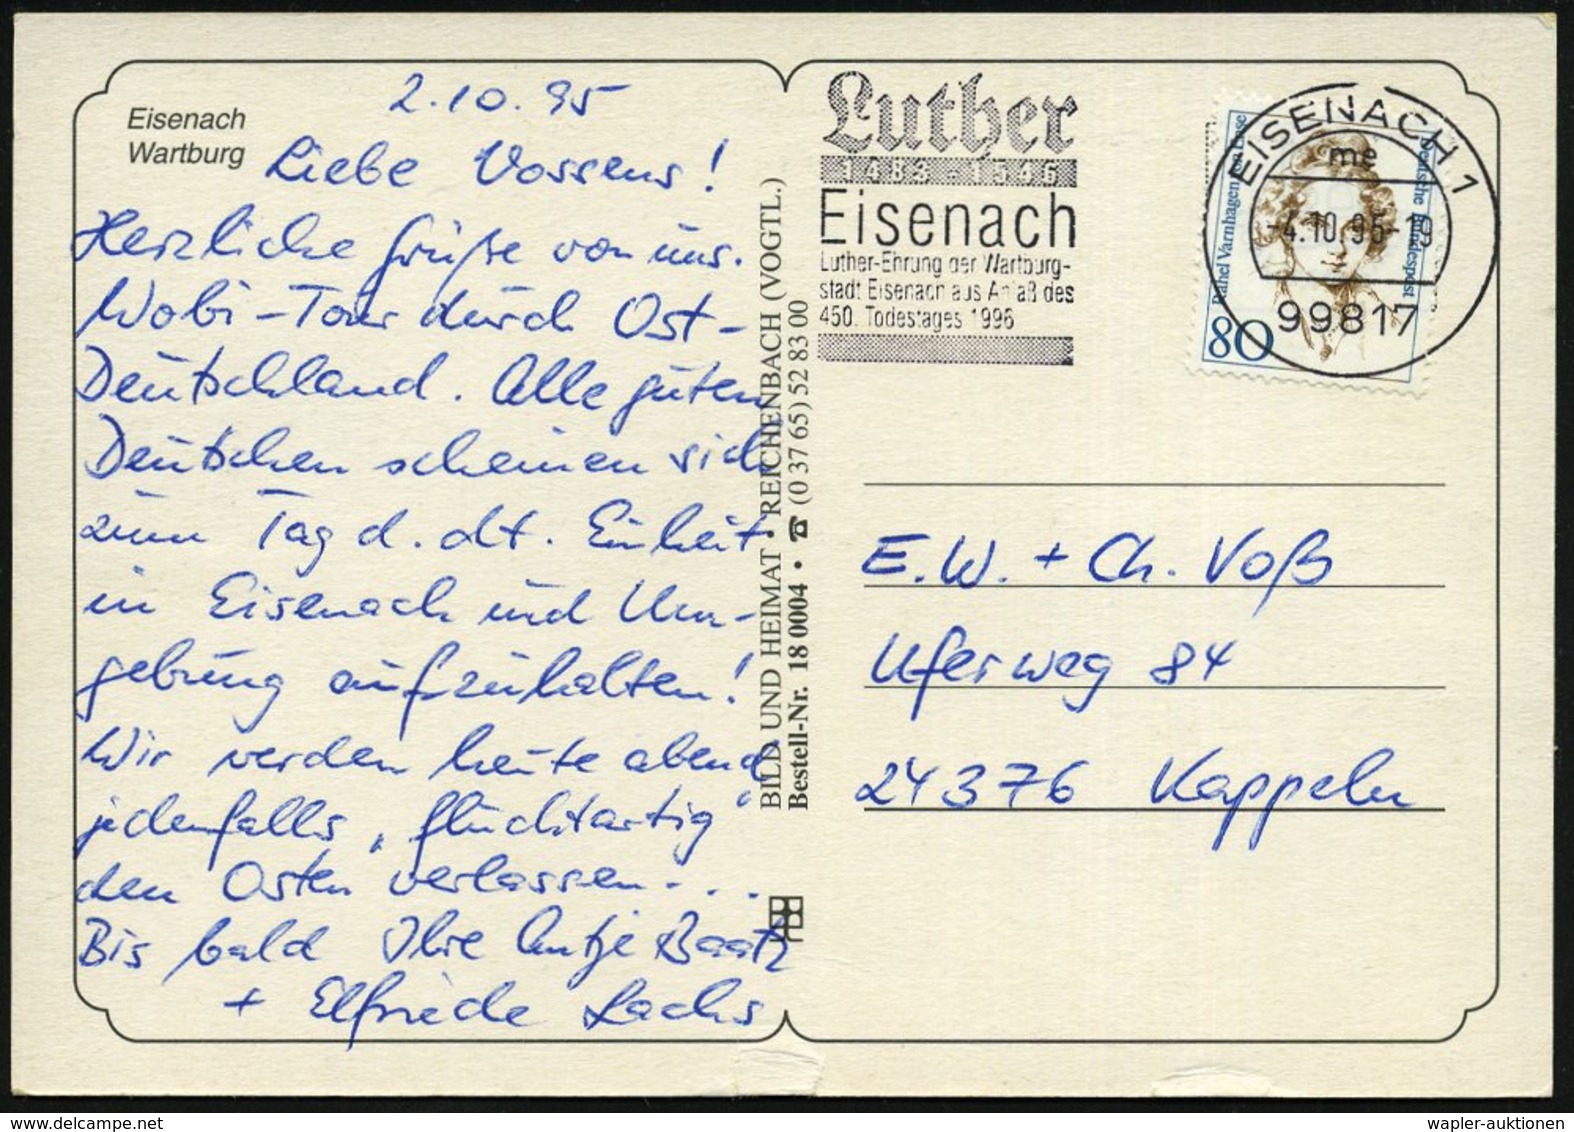 Eisenach
Wartburg
2.10.95
Liebe Vossens!
Herzliche Grüße von uns.
Wobi-Tour durch Ost-
Deutschland. Alle guten
Deutschen scheinen sich
zum Tag d. dt. Einheit
in Eisenach und Um-
gebung aufzuhalten!
Wir werden heute abend
jedenfalls „fluchtartig“
den Osten verlassen...
Bis bald Ihre Antje Baatz
+ Elfriede Lachs
BILD UND HEIMAT • REICHENBACH (VOGTL.)
Bestell-Nr. 18 0004 • ☎ (0 37 65) 52 83 00
Luther
1483 - 1546
Eisenach
Luther-Ehrung der Wartburg-
stadt Eisenach aus Anlaß des
450. Todestages 1996
EISENACH 1
me
-4.10.95-19
99817
Rahel Varnhagen von Ense
Deutsche Bundespost
80
E.W. + Ch. Voß
Uferweg 84
24376 Kappeln
wapler-auktionen